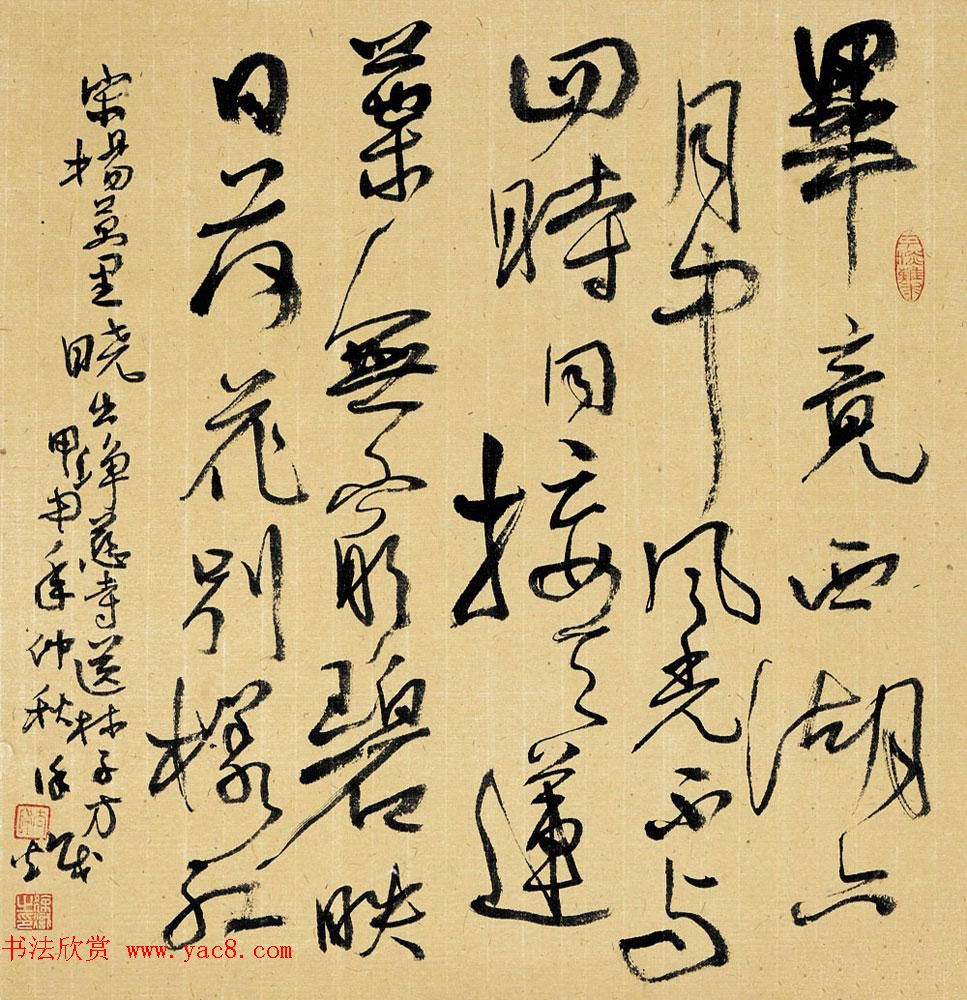 畢竟西湖六
月中風光不与
四時同接天蓮
葉無窮碧映
日荷花别樣紅
宋楊萬里晓出净慈寺送林子方
甲申年仲秋徐
书法欣赏 www.yac8.com